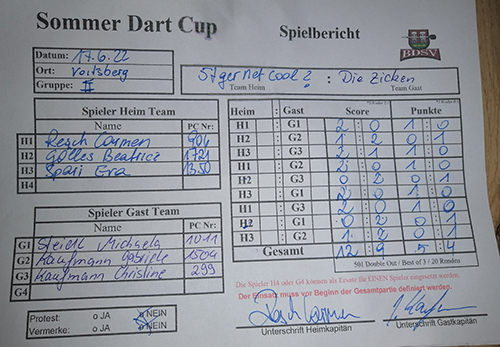 Sommer Dart Cup
Spielbericht
BDSV
Datum: 17.6.22
Ort: Voitsberg
Gruppe: II
5tger Net Cool 2 : Die Zicken
Team Heim Team Gast
Spieler Heim Team
Name PC Nr:
H1 Resch Carmen 904
H2 Gölles Beatrice 1721
H3 Spari Eva 1350
H4
Spieler Gast Team
Name PC Nr:
G1 Steidl Michaela 1011
G2 Kaufmann Gabriele 1504
G3 Kaufmann Christine 299
G4
Protest: o JA o NEIN
Vermerke: o JA o NEIN
Heim : Gast Score Punkte
H1 : G1 2 : 0 1 : 0
H2 : G2 1 : 2 0 : 1
H3 : G3 2 : 1 1 : 0
H1 : G2 2 : 0 1 : 0
H2 : G3 0 : 2 0 : 1
H3 : G1 2 : 0 1 : 0
H1 : G3 2 : 0 1 : 0
H2 : G1 0 : 2 0 : 1
H3 : G2 1 : 2 0 : 1
Gesamt 12 : 9 5 : 4
501 Double Out / Best of 3 / 20 Runden
Die Spieler H4 oder G4 können als Ersatz für EINEN Spieler eingesetzt werden.
Der Einsatz muss vor Beginn der Gesamtpartie definiert werden.
Unterschrift Heimkapitän
Unterschrift Gastkapitän